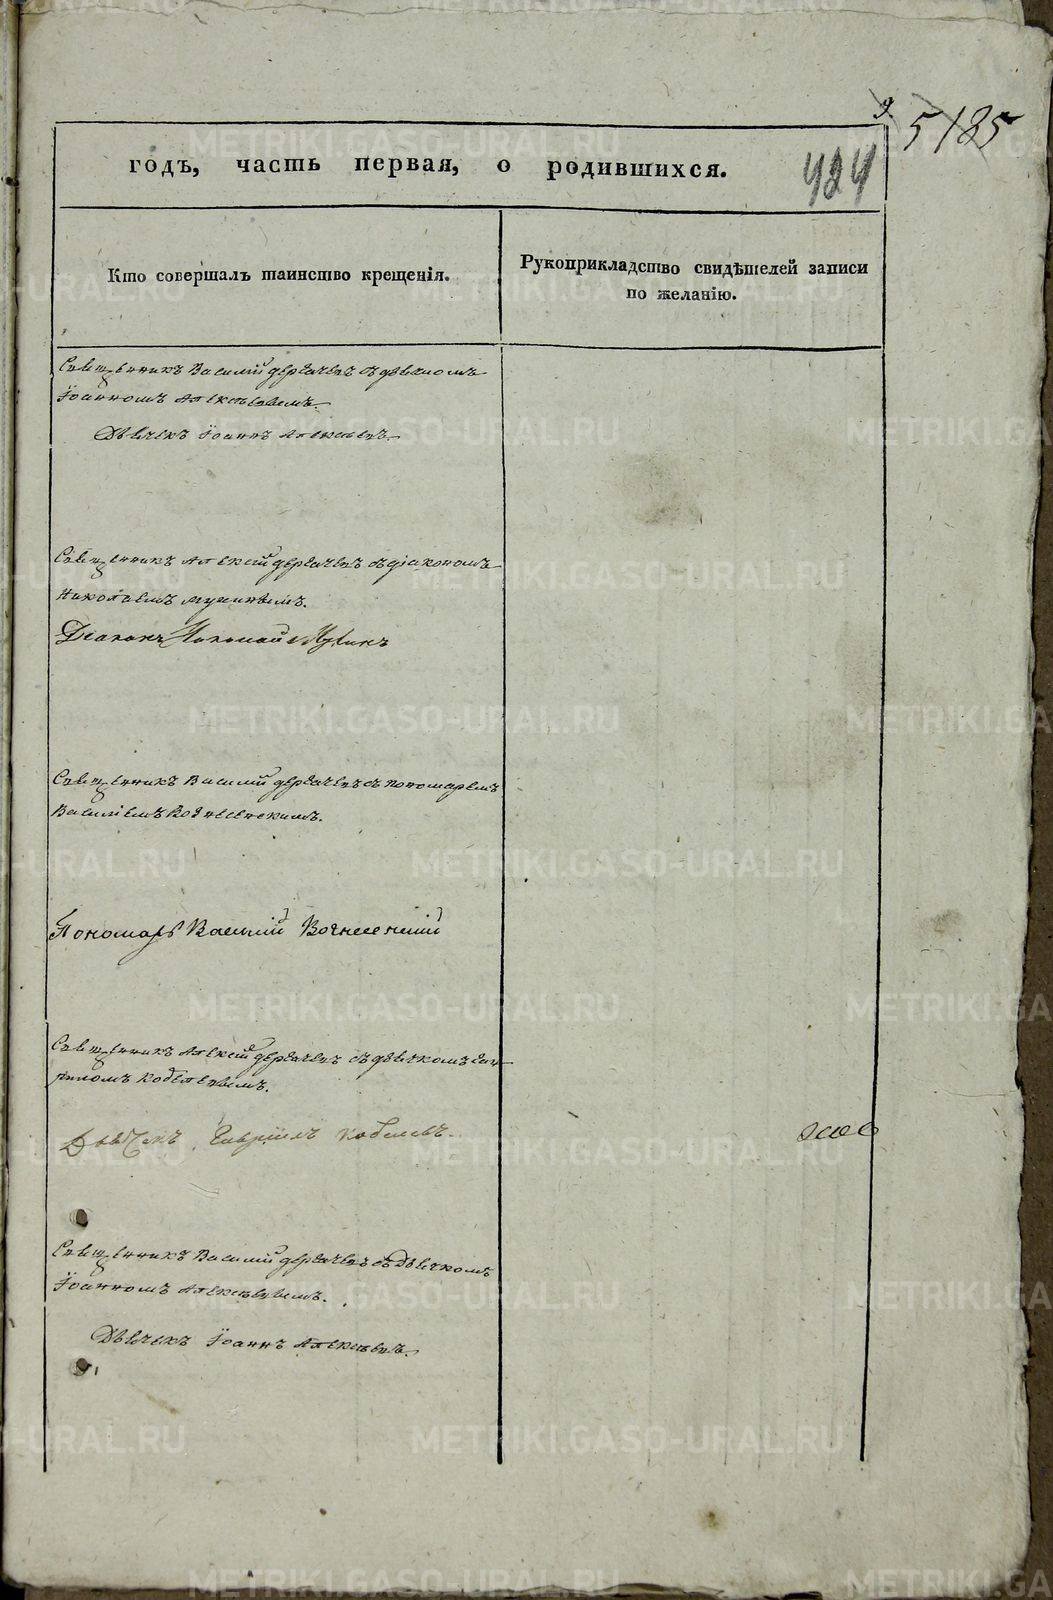 5185
424
годъ, часть первая, о родившихся.
Кто совершалъ таинство крещенія.
Рукоприкладство свидѣтелей записи
по желанію.
Священникъ Василій Дерячевъ съ дьячкомъ
Іоанномъ Алексѣевымъ.
Дьячекъ Іоаннъ Алексѣевъ.
Священникъ Алексѣй Дерячевъ съ діакономъ
Николаемъ
Діаконъ Николай
Священникъ Василій Дерячевъ съ пономаремъ
Василіемъ Вознесенскимъ.
Пономарь Василій Вознесенскій
Священникъ Алексѣй Дерячевъ съ дьячкомъ Гав-
ріиломъ Кобелевымъ.
Дьячекъ Гавріилъ Кобелевъ.
Священникъ Василій Дерячевъ съ дьячкомъ
Іоанномъ Алексѣевымъ.
Дьячекъ Іоаннъ Алексѣевъ.
METRIKI.GASO-URAL.RU